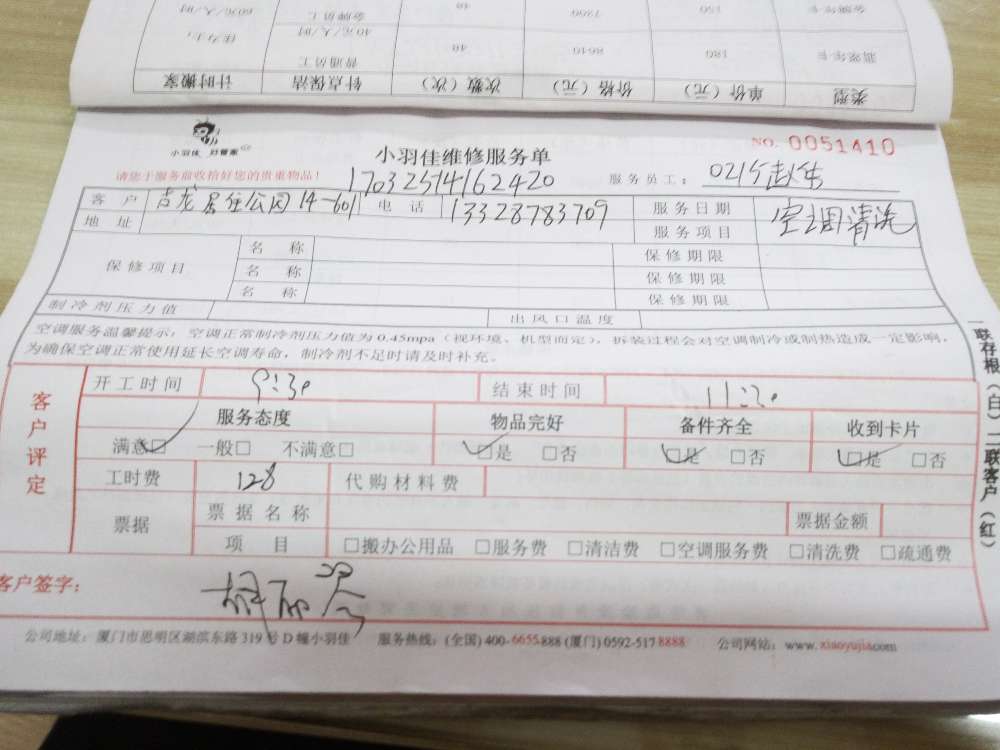 金牌年卡 150 7200 48 金牌员工 60元/人/时
翡翠年卡 180 8640 48 普通员工 40元/人/时
类型 单价（元） 价格（元） 次数（次） 钟点保洁 计时搬家
小羽佳 好管家
小羽佳维修服务单 NO. 0051410
请您于服务前收拾好您的贵重物品！ 17032514162420 服务员工：
客户 吉龙居住公园14-601 电话 13328783709 服务日期 空调清洗
地址 服务项目
保修项目 名称 保修期限
名称 保修期限
名称 保修期限
制冷剂压力值 出风口温度
空调服务温馨提示：空调正常制冷剂压力值为0.45mpa（视环境、机型而定），拆装过程会对空调制冷或制热造成一定影响，
为确保空调正常使用延长空调寿命，制冷剂不足时请及时补充。
客户评定
开工时间 9:30 结束时间 11:30
服务态度 物品完好 备件齐全 收到卡片
满意□ 一般□ 不满意□ □是 □否 □是 □否 □是 □否
工时费 128 代购材料费
票据 票据名称 票据金额
项目 □搬办公用品 □服务费 □清洁费 □空调服务费 □清洗费 □疏通费
客户签字：
公司地址：厦门市思明区湖滨东路319号D幢小羽佳 服务热线：(全国)400-6655888 (厦门)0592-5178888 公司网站：www.xiaoyujia.com
一联存根（白）二联客户（红）